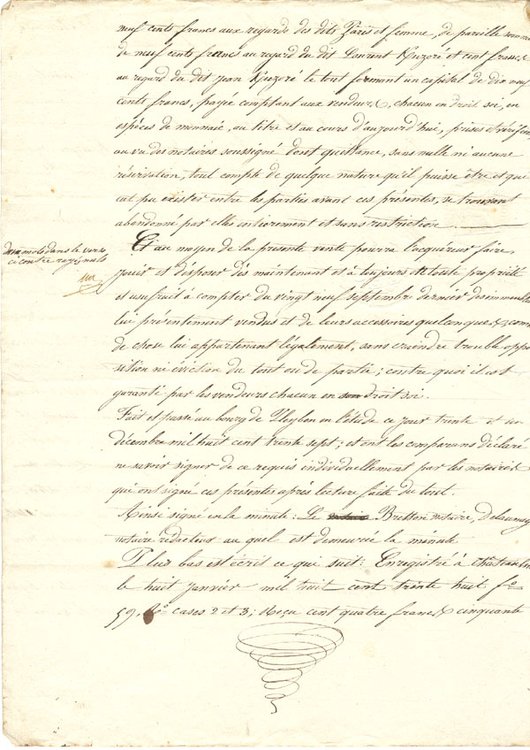 neuf cents francs aux regards des dits Paris et femme, de pareille somme
de neuf cents francs au regard du dit Laurent Guzoré et cent francs
au regard du dit Jean Guzoré le tout formant un capital de dix neuf
cents francs, payée comptant aux vendeurs, chacun en droit soi, en
espèces de monnaie, au titre et au cours d'aujourd'hui, prises et vérifiées
au vu des notaires soussigné dont quittance, sans nulle ni aucune
réservation, tout compte de quelque nature qu'il puisse être et que
eut pu exister entre les parties avant ces présentes, se trouvant
abandonné par elles entièrement et sans restriction
Et au moyen de la présente vente pourra l'acquéreur faire
jouir et disposer dès maintenant et à toujours de toute propriété
et usufruit à compter du vingt neuf septembre dernier des immeubles
lui présentement vendus et de leurs accessoires quelconques comme
de chose lui appartenant légalement, sans craindre trouble oppo
sition ni éviction du tout ou de partie; contre quoi il est
garanti par les vendeurs chacun en son droit soi.
Fait et passé au bourg de Pleyben en l'étude ce jour trente et un
décembre mil huit cent trente sept; et ont les comparans déclaré
ne savoir signer de ce requis individuellement par les notaires
qui ont signé ces présentes après lecture faite du tout.
Ainsi signé en la minute: Le Bretton notaire, Delaunay
notaire rédacteur au quel est demeurée la minute
Plus bas est écrit ce qui suit: Enregistré à Chateaulin
le huit janvier mil huit cent trente huit fo
59. Ro cases 2 et 3; Reçu cent quatre francs cinquante
mots dans le verso
ci contre rayés nuls